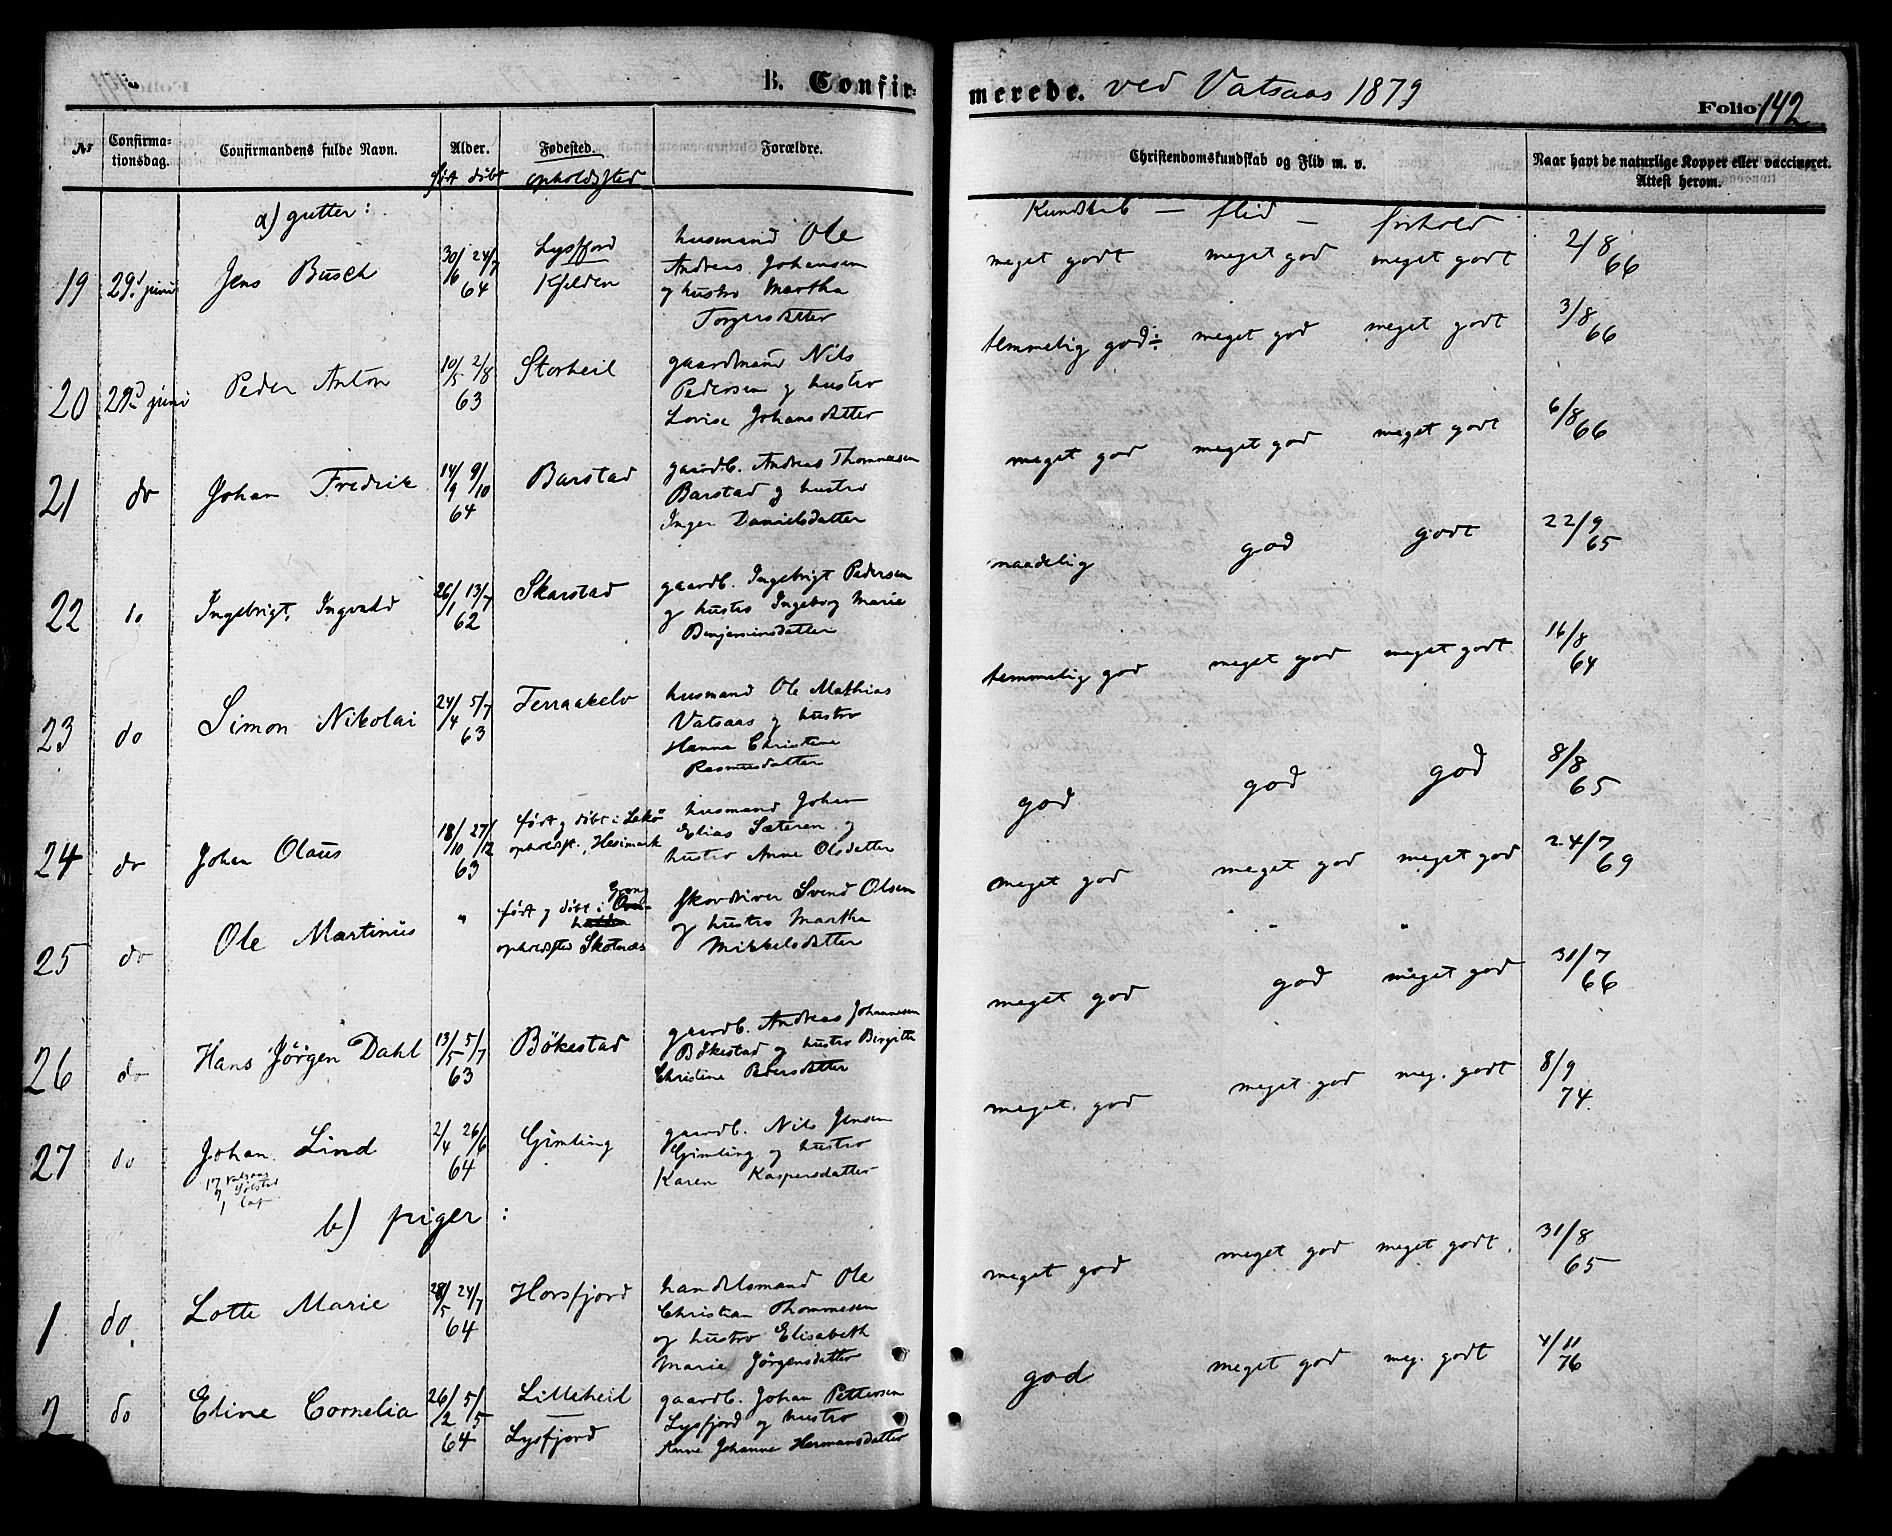 B. Confirmerede. ved Vatsaas 1879
Folio 142
№ Confirmationsdag. Confirmandens fulde Navn. Alder. Fødested. Forældre. Christendomskundskab og Flid m. v. Naar havt de naturlige Kopper eller vaccineret. Attest herom.
født døbt opholdssted
a) gutter:
Kundskab — flid — forhold
19 29d juni Jens Busch 30/6 24/7 64 Lysfjord Kjelden
husmand Ole
Andreas Johansen
og hustro Martha
Torgersdatter
meget godt meget god meget godt 2/8 66
20 29d juni Peder Anton 10/5 2/8 63 Storheil
gaardmand Nils
Pedersen og hustro
Lovise Johansdatter
temmelig god÷ meget god meget godt 3/8 66
21 do Johan Fredrik 14/9 9/10 64 Barstad
gaardb. Andreas Thommesen
Barstad og hustro
Inger Danielsdatter
meget god meget god meget godt 6/8 66
22 do Ingebrigt Ingvald 26/1 13/7 62 Skarstad
gaardb. Ingebrigt Pedersen
og hustro Ingeborg Marie
Benjaminsdatter
maadelig god godt 22/9 65
23 do Simon Nikolai 24/4 5/7 63 Terraakelv
husmand Ole Mathias
Vatsaas og hustro
Hanna Christine
Rasmusdatter
temmelig god meget god meget godt 16/8 64
24 do Johan Olaus 18/10 27/12 63 født og døbt i Lekö
opholdsst. Hesimark
husmand Johan
Elias Sæteren og
hustro Anne Olsdatter
god god god 8/8 65
25 do Ole Martinus " født og døbt i Grong
opholdssted Skotnæs
skovdriver Svend Olsen
og hustro Martha
Mikkelsdatter
meget god meget god meget god 24/7 69
" "
26 do Hans Jørgen Dahl 13/5 5/7 63 Bökestad
gaardb. Andreas Johannesen
Bökestad og hustro Birgitte
Christine Pedersdatter
meget god god meget god 31/7 66
27 do Johan Lind 2/4 26/6 64 Gimling
gaardb. Nils Jensen
Gimling og hustro
Karen Kaspersdatter
meget god meget god meg. godt 8/9 74
17 Vatsaas
9 Solstad
1 Lap
b) piger:
1 do. Lotte Marie 28/5 24/7 64 Horsfjord
handelsmand Ole
Christian Thommesen
og hustro Elisabeth
Marie Jørgensdatter
meget god meget god meget godt. 31/8 65
2 do Eline Cornelia 26/2 5/5 64 Lilleheil
Lysfjord
gaardb. Johan Pettersen
Lysfjord og hustro
Anne Johanne Hermansdatter
god meget god meg. godt 4/11 76